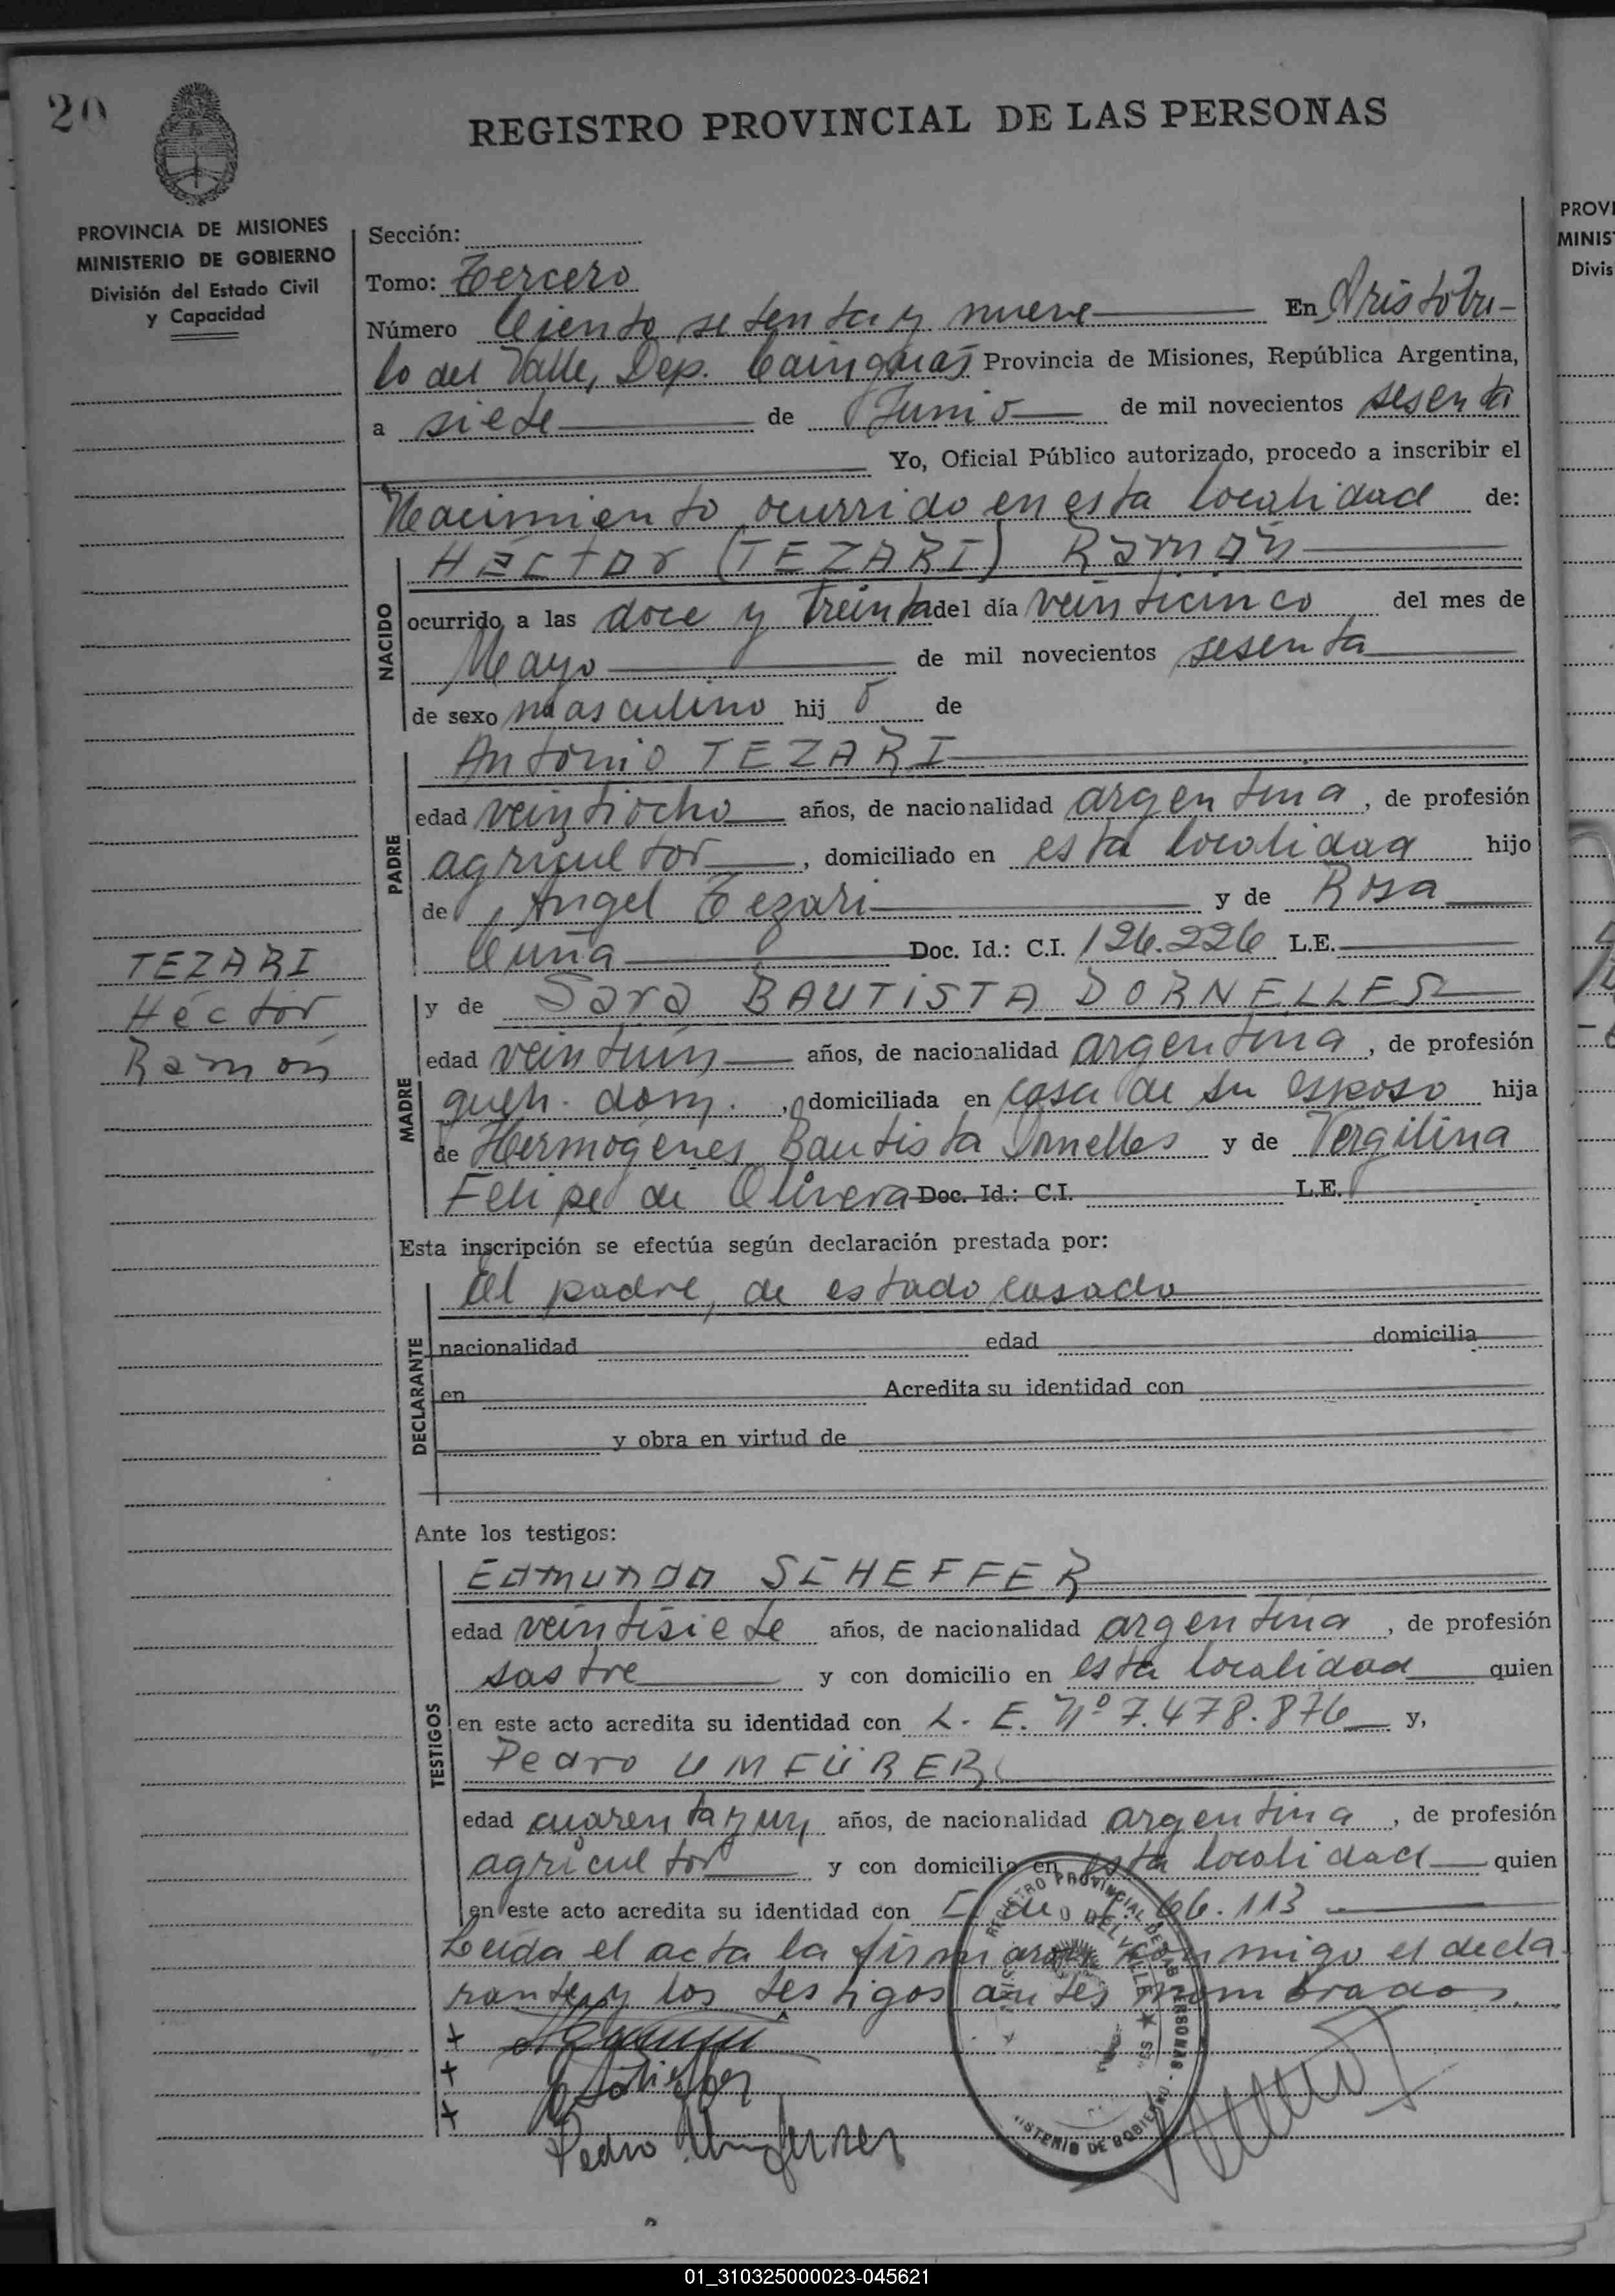 20
REGISTRO PROVINCIAL DE LAS PERSONAS
PROVINCIA DE MISIONES
MINISTERIO DE GOBIERNO
División del Estado Civil
y Capacidad
Sección:
Tomo: Tercero
Número Ciento setenta y nueve En Aristóbu-
lo del Valle, Dep. Cainguás Provincia de Misiones, República Argentina,
a siete de Junio de mil novecientos sesenta
Yo, Oficial Público autorizado, procedo a inscribir el
Nacimiento ocurrido en esta localidad de:
NACIDO
Héctor (TEZARI) Ramón
ocurrido a las doce y treinta del día veinticinco del mes de
Mayo de mil novecientos sesenta
de sexo masculino hij o de
PADRE
Antonio TEZARI
edad veintiocho años, de nacionalidad argentina, de profesión
agricultor, domiciliado en esta localidad hijo
de Angel Tezari y de Rosa
Cuña Doc. Id.: C.I. 126.226 L.E.
TEZARI
Héctor
Ramón
MADRE
y de Sara BAUTISTA DORNELLES
edad veintiún años, de nacionalidad argentina, de profesión
queh. dom., domiciliada en casa de su esposo hija
de Hermógenes Bautista Dornelles y de Vergilina
Felipe de Olivera Doc. Id.: C.I. L.E.
Esta inscripción se efectúa según declaración prestada por:
DECLARANTE
El padre, de estado casado
nacionalidad edad domicilia
en Acredita su identidad con
y obra en virtud de
Ante los testigos:
TESTIGOS
Edmundo SCHEFFER
edad veintisiete años, de nacionalidad argentina, de profesión
sastre y con domicilio en esta localidad quien
en este acto acredita su identidad con L. E. Nº 7.478.876 y,
Pedro UMFÜRER
edad cuarenta y un años, de nacionalidad argentina, de profesión
agricultor y con domicilio en esta localidad quien
en este acto acredita su identidad con C. de I. 66.113
Leída el acta la firmaron conmigo el decla
rante y los testigos antes nombrados.
x
x
x
E Scheffer
Pedro
REGISTRO PROVINCIAL DE LAS PERSONAS
DEL VALLE
MINISTERIO DE GOBIERNO
PROVI
MINIS
Divis
01_310325000023-045621